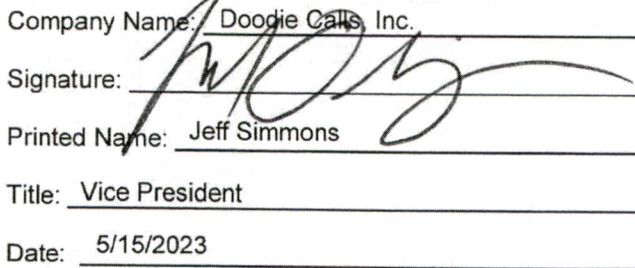 Company Name: Doodie Calls, Inc.
Signature:
Printed Name: Jeff Simmons
Title: Vice President
Date: 5/15/2023